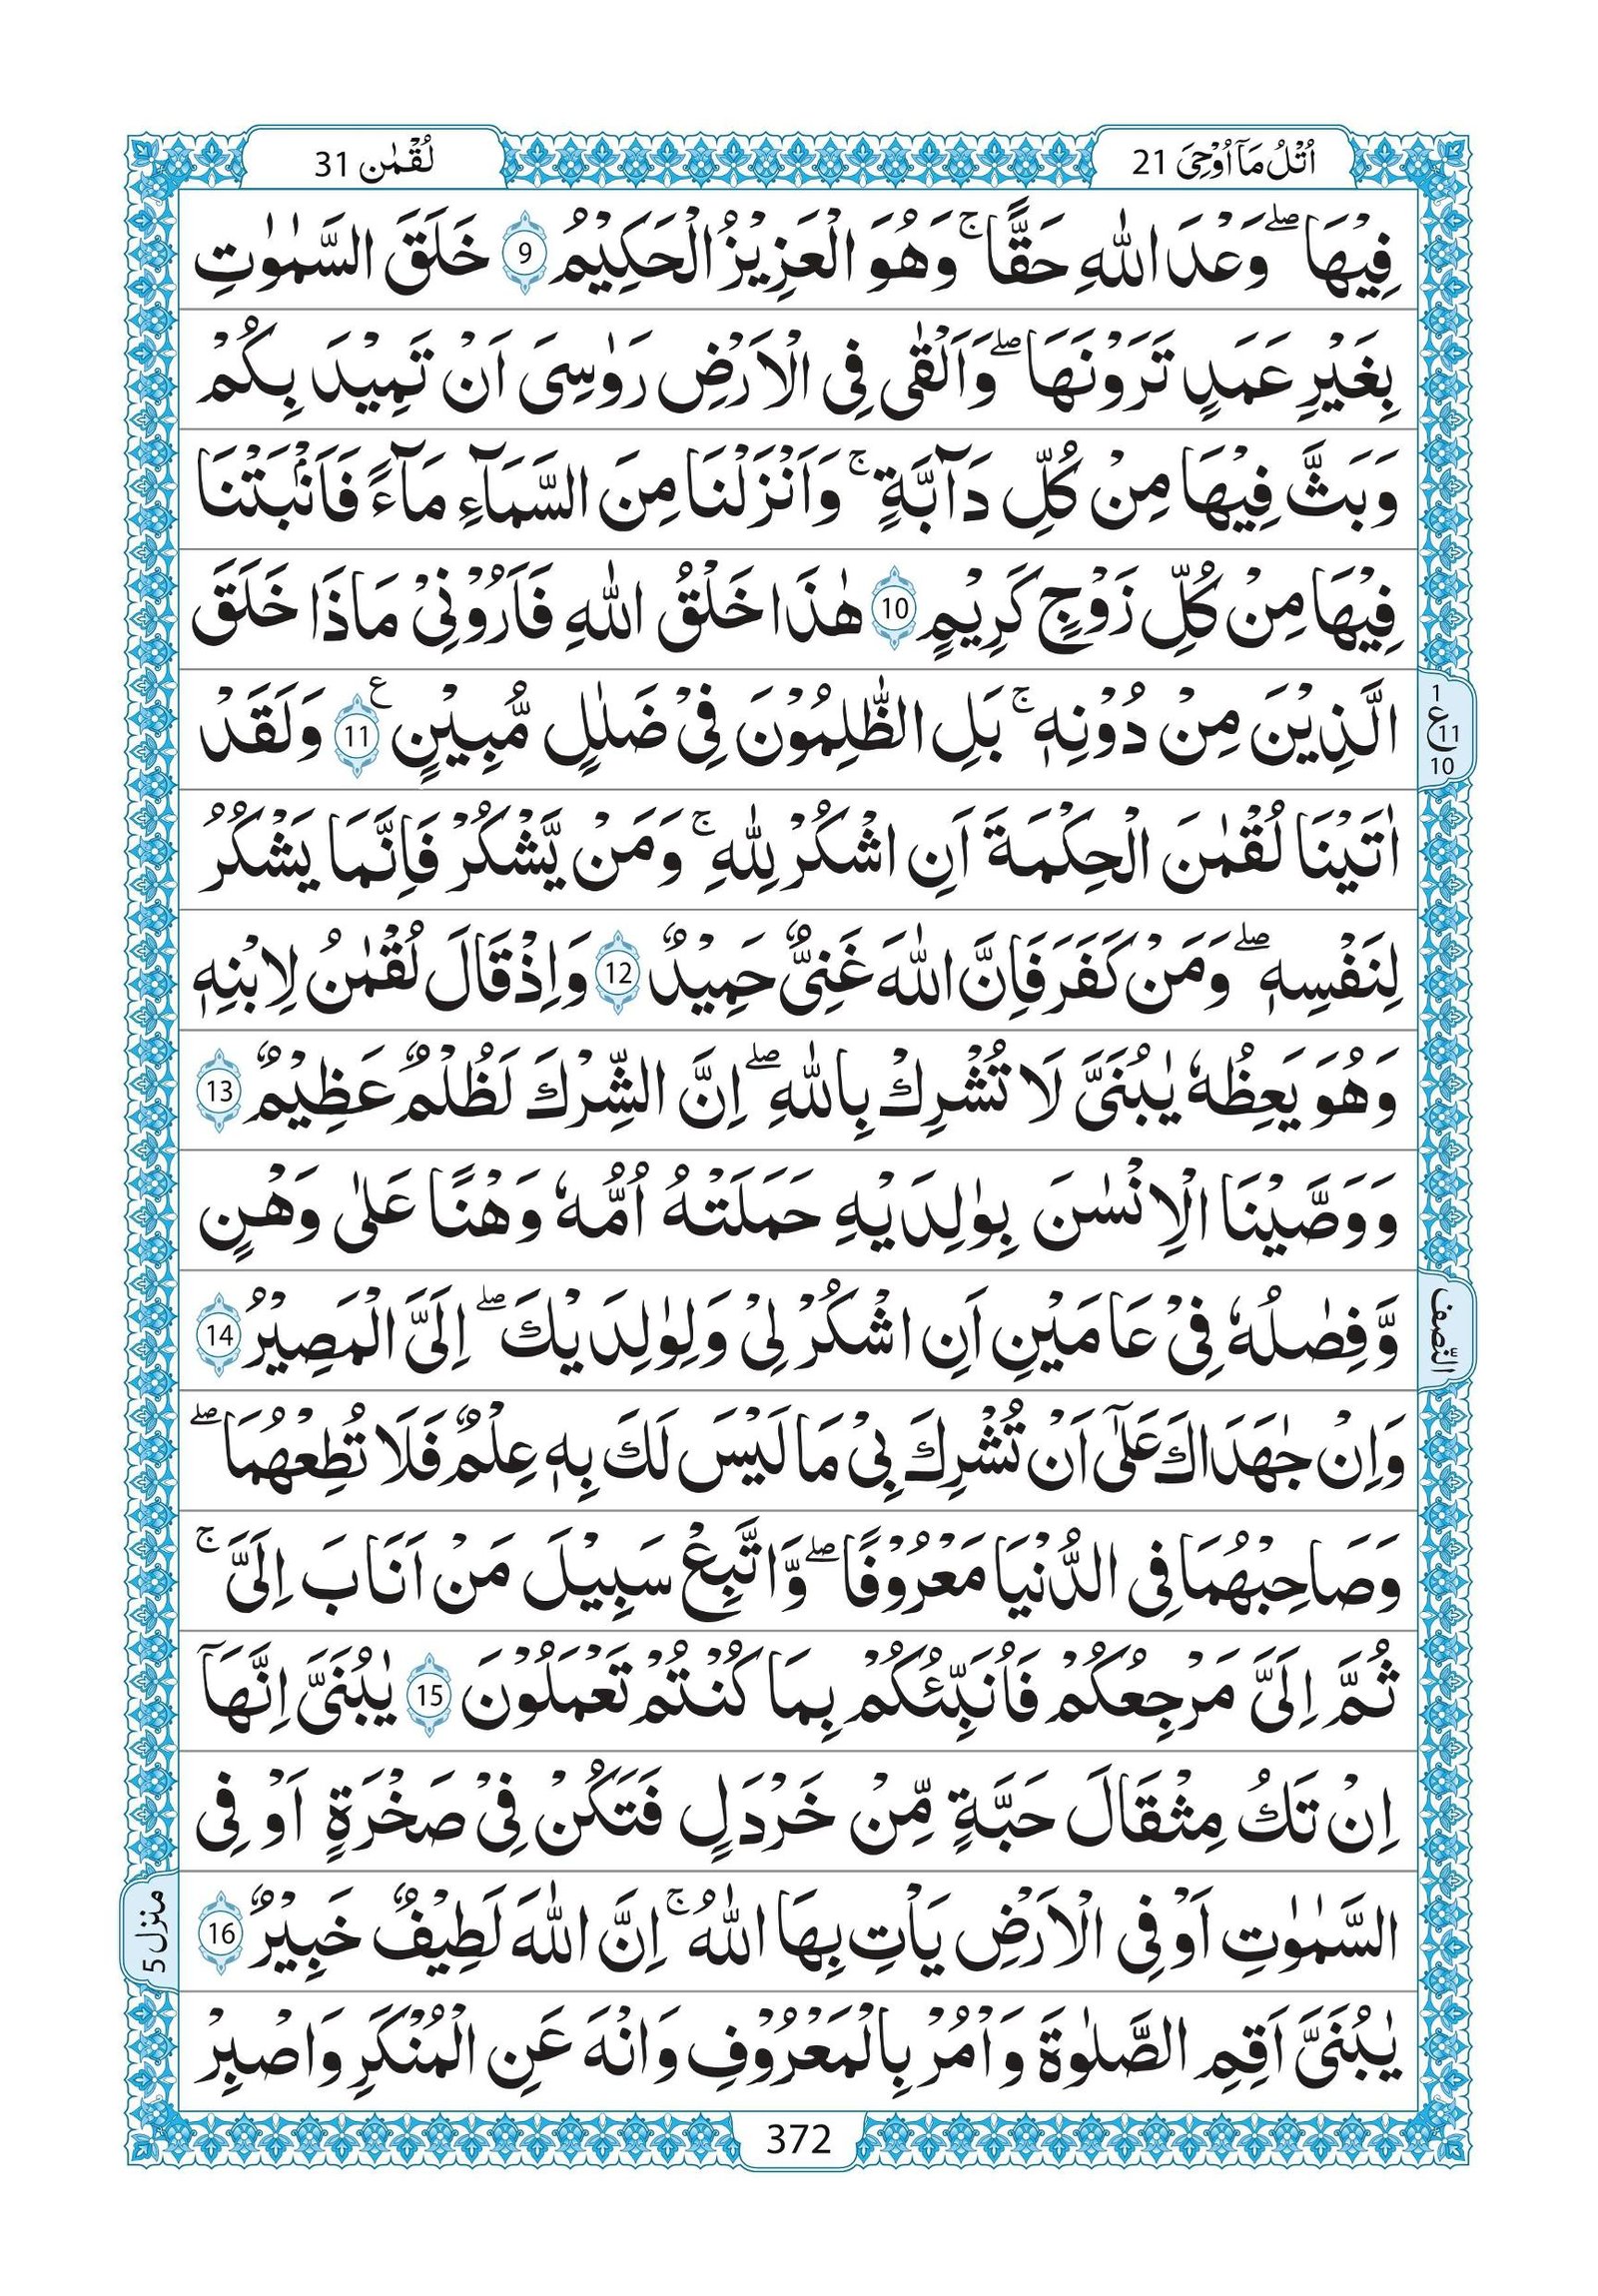 اُتْلُ مَاۤ اُوْحِیَ 21
لُقْمٰن 31
فِیْهَا ؕۖ وَعْدَ اللّٰهِ حَقًّا ۚ وَهُوَ الْعَزِیْزُ الْحَكِیْمُ 9 خَلَقَ السَّمٰوٰتِ
بِغَیْرِ عَمَدٍ تَرَوْنَهَا ۖ وَاَلْقٰی فِی الْاَرْضِ رَوٰسِیَ اَنْ تَمِیْدَ بِكُمْ
وَبَثَّ فِیْهَا مِنْ كُلِّ دَآبَّةٍ ۚ وَاَنْزَلْنَا مِنَ السَّمَآءِ مَآءً فَاَنْۢبَتْنَا
فِیْهَا مِنْ كُلِّ زَوْجٍ كَرِیْمٍ 10 هٰذَا خَلْقُ اللّٰهِ فَاَرُوْنِیْ مَاذَا خَلَقَ
الَّذِیْنَ مِنْ دُوْنِهٖ ۚ بَلِ الظّٰلِمُوْنَ فِیْ ضَلٰلٍ مُّبِیْنٍ ع 11 وَلَقَدْ
1
ع 11
10
اٰتَیْنَا لُقْمٰنَ الْحِكْمَةَ اَنِ اشْكُرْ لِلّٰهِ ۚ وَمَنْ یَّشْكُرْ فَاِنَّمَا یَشْكُرُ
لِنَفْسِهٖ ۖ وَمَنْ كَفَرَ فَاِنَّ اللّٰهَ غَنِیٌّ حَمِیْدٌ 12 وَاِذْ قَالَ لُقْمٰنُ لِابْنِهٖ
وَهُوَ یَعِظُهٗ یٰبُنَیَّ لَا تُشْرِكْ بِاللّٰهِ ۖ اِنَّ الشِّرْكَ لَظُلْمٌ عَظِیْمٌ 13
وَوَصَّیْنَا الْاِنْسٰنَ بِوٰلِدَیْهِ حَمَلَتْهُ اُمُّهٗ وَهْنًا عَلٰی وَهْنٍ
وَّفِصٰلُهٗ فِیْ عَامَیْنِ اَنِ اشْكُرْ لِیْ وَلِوٰلِدَیْكَ ۖ اِلَیَّ الْمَصِیْرُ 14
النّصف
وَاِنْ جٰهَدَاكَ عَلٰۤی اَنْ تُشْرِكَ بِیْ مَا لَیْسَ لَكَ بِهٖ عِلْمٌ فَلَا تُطِعْهُمَا ۖ
وَصَاحِبْهُمَا فِی الدُّنْیَا مَعْرُوْفًا ۖ وَّاتَّبِعْ سَبِیْلَ مَنْ اَنَابَ اِلَیَّ ۚ
ثُمَّ اِلَیَّ مَرْجِعُكُمْ فَاُنَبِّئُكُمْ بِمَا كُنْتُمْ تَعْمَلُوْنَ 15 یٰبُنَیَّ اِنَّهَاۤ
اِنْ تَكُ مِثْقَالَ حَبَّةٍ مِّنْ خَرْدَلٍ فَتَكُنْ فِیْ صَخْرَةٍ اَوْ فِی
السَّمٰوٰتِ اَوْ فِی الْاَرْضِ یَاْتِ بِهَا اللّٰهُ ۚ اِنَّ اللّٰهَ لَطِیْفٌ خَبِیْرٌ 16
منزل 5
یٰبُنَیَّ اَقِمِ الصَّلٰوةَ وَاْمُرْ بِالْمَعْرُوْفِ وَانْهَ عَنِ الْمُنْكَرِ وَاصْبِرْ
372